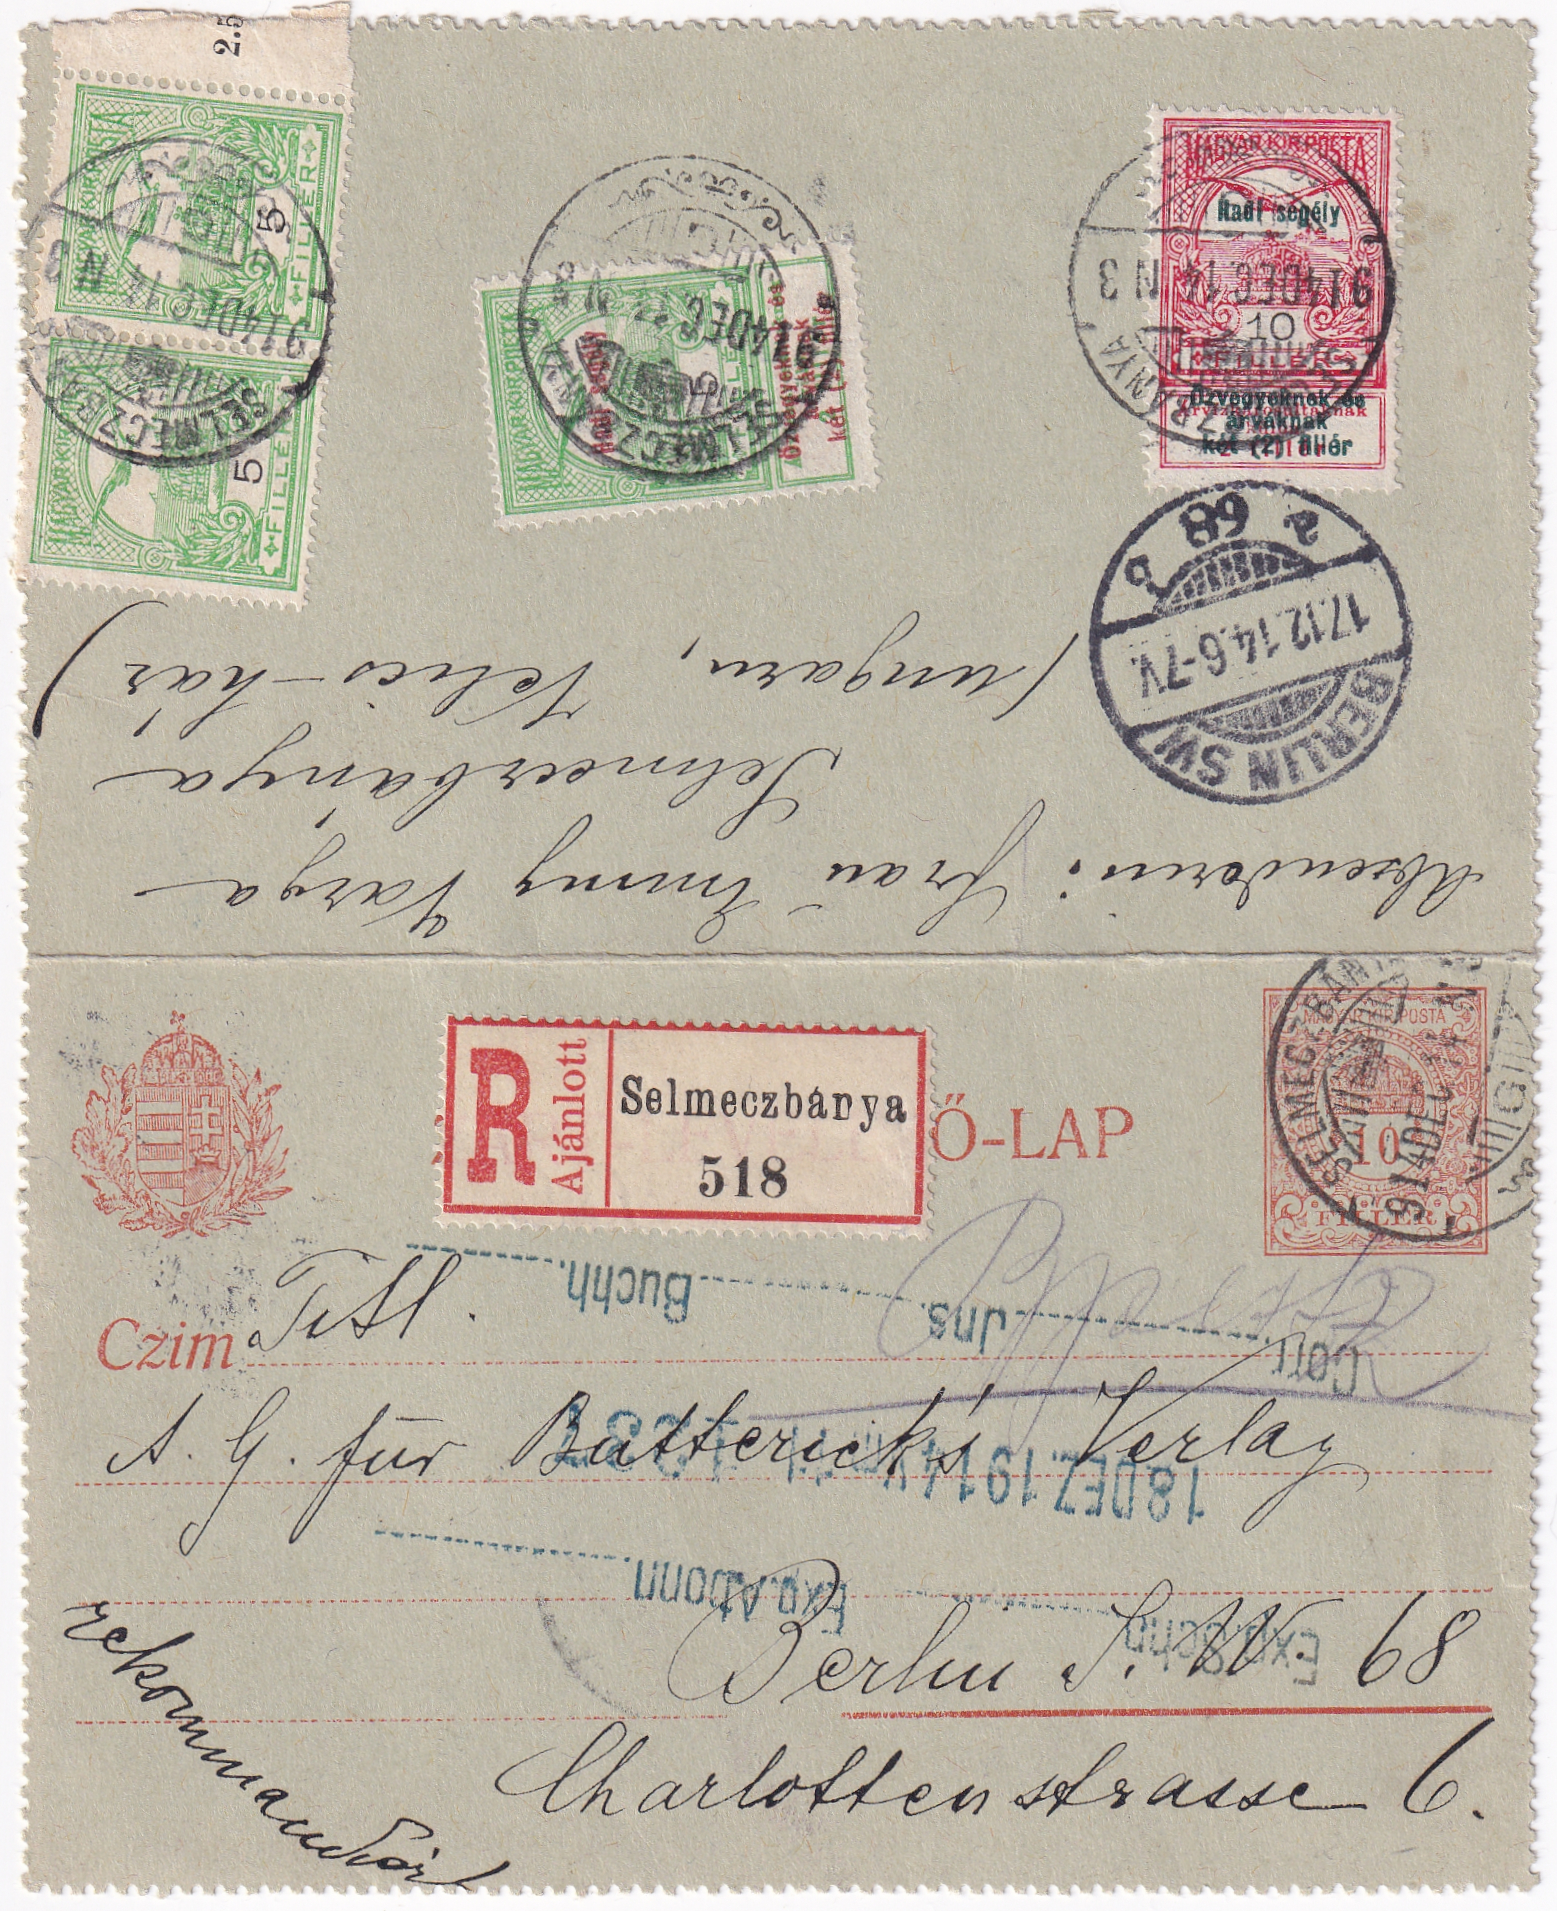 2.5
MAGYAR KIR. POSTA
5
FILLÉR
MAGYAR KIR. POSTA
5
FILLÉR
SELMECZBÁNYA
914 DEC. 14 N 3
MAGYAR KIR. POSTA
Hadi segély
Özvegyeknek és
árváknak
két (2) fillér
SELMECZBÁNYA
914 DEC. 14 N 3
MAGYAR KIR. POSTA
Hadi segély
10
FILLÉR
Özvegyeknek és
árváknak
két (2) fillér
914 DEC. 14 N 3
BERLIN SW
17.12.14.6-7V.
68
Absenderin: Frau Emmy Varga
Selmeczbánya
(Ungarn,
R
Ajánlott
Selmeczbánya
518
Ő-LAP
MAGYAR KIR. POSTA
10
FILLÉR
SELMECZBÁNYA
914 DEC. 14
Czim Titl.
A. G. für Butterick's Verlag
Berlin S. W. 68
Charlottenstrasse 6.
rekommandiert
Exp. Schn.
Exp. Abonn.
18 DEZ. 1914
Corr.
Jns.
Buchh.